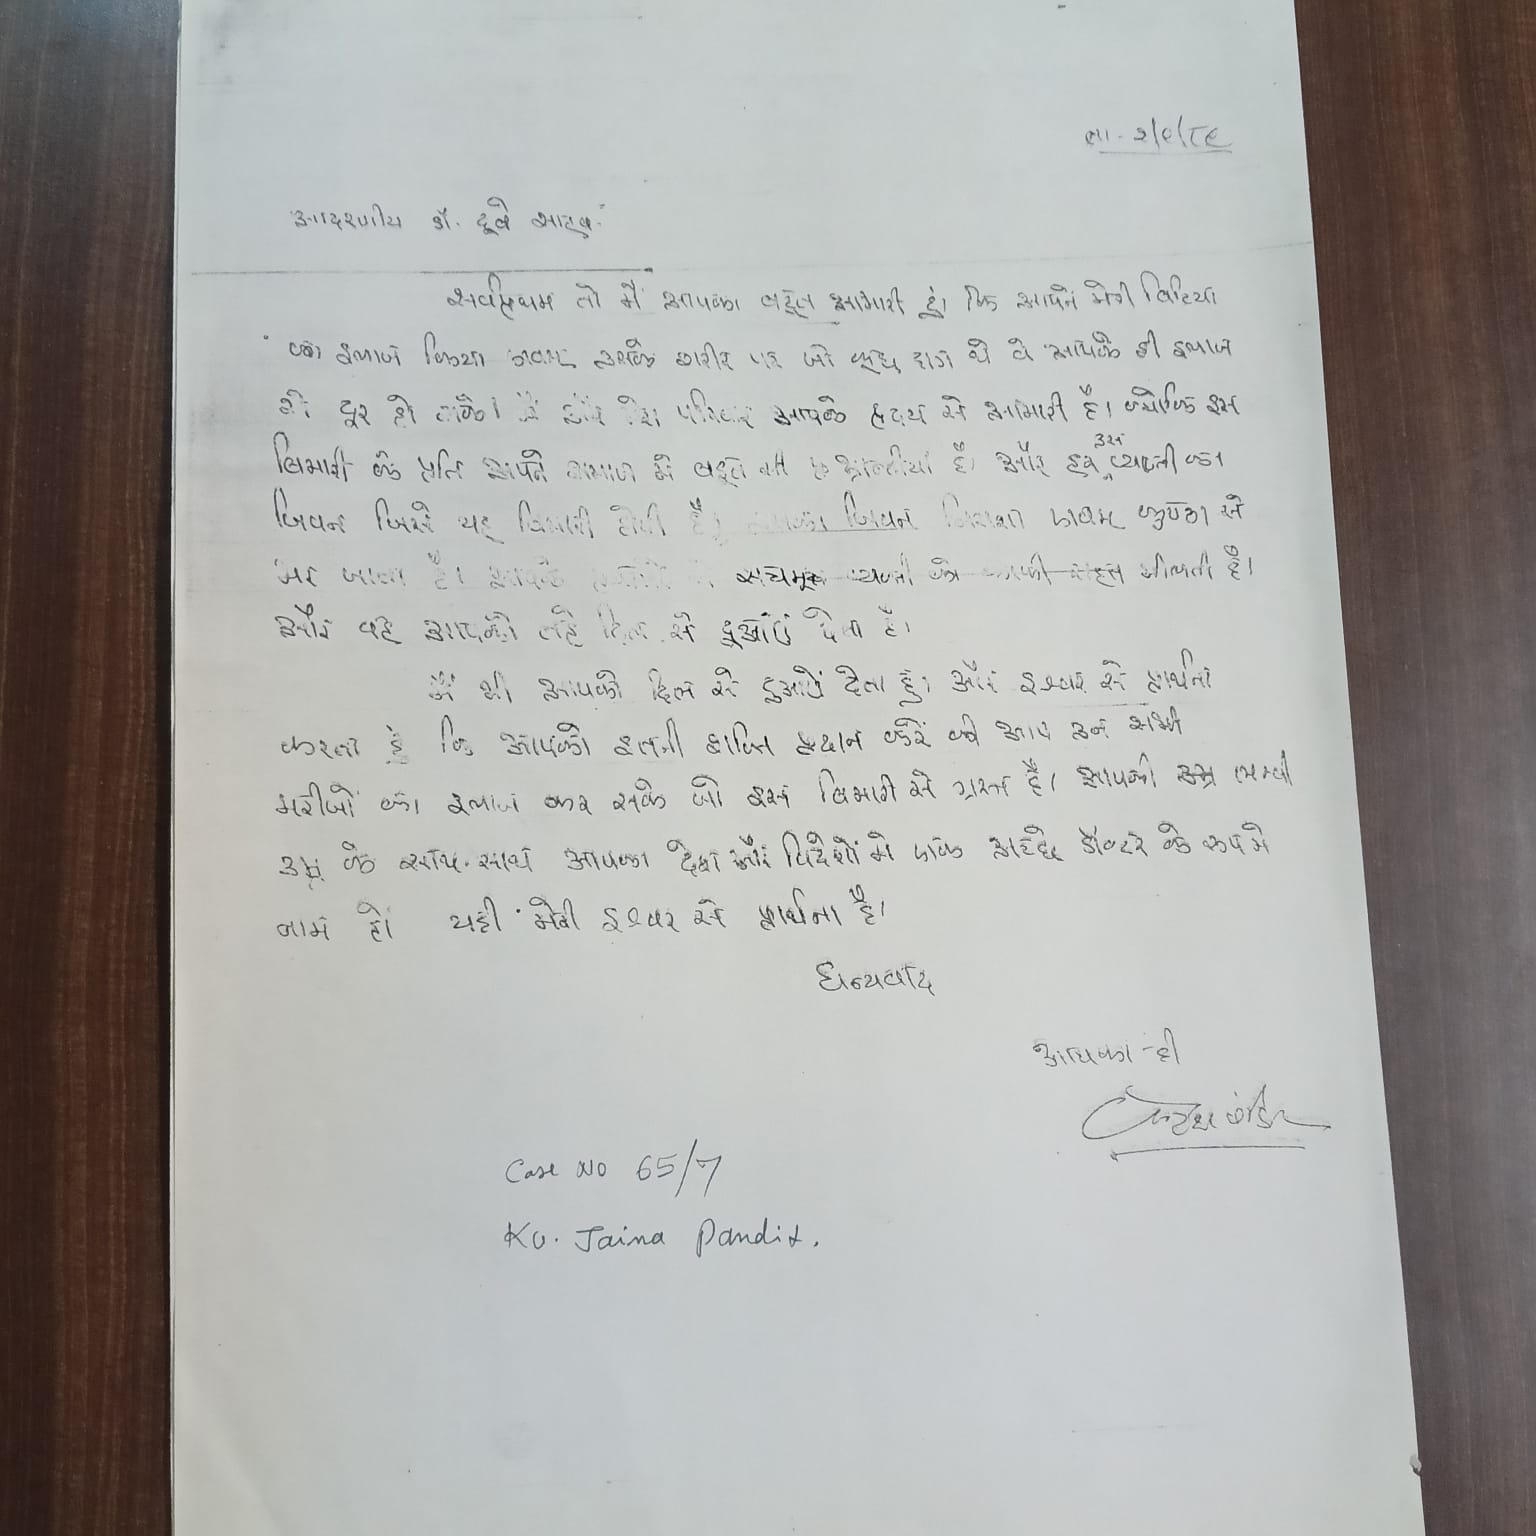 ता - २/९/८९
आदरणीय डॉ. दूबे साहब
सर्वप्रथम तो मैं आपका बहुत आभारी हूं। कि आपने मेरी बिटिया
का इलाज किया उसके शरीर पर जो कुछ दाग थे वे आपके ही इलाज
से दूर हो सके। मैं और मेरा परिवार आपके हृदय से आभारी है। क्योंकि इस
बिमारी के प्रति अपने समाज में बहुत सी भ्रान्तीयां है। और हर उस व्यक्ती का
जिवन जिसे यह बिमारी होती है। उसका जिवन निराशा एवम् कुण्ठा से
भर जाता है। आपके सचमुच व्यक्ती को काफी राहत मीलती है।
और वह आपको तहे दिल से दुआएं देता है।
मैं भी आपको दिल से दुआएं देता हूं। और इश्वर से प्रार्थना
करता हूं कि आपको इतनी शक्ति प्रदान करें की आप उन सभी
मरीजों का इलाज कर सके जो इस बिमारी से ग्रस्त है। आपकी लम्बी
उम्र के साथ-साथ आपका देश और विदेशों में एक अच्छे डॉक्टर के रुप में
नाम हो। यही मेरी इश्वर से प्रार्थना है।
धन्यवाद
आपका ही
Case No 65/7
Ku. Jaina Pandit.